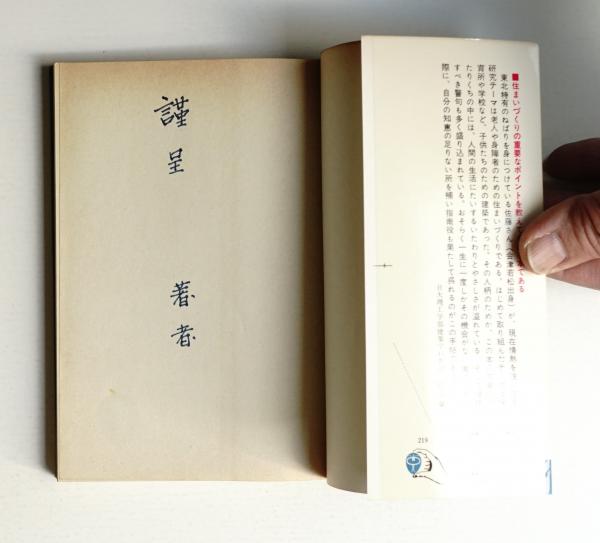 謹呈 著者
■住まいづくりの重要なポイントを教え
である
東北特有のねばりを身につけている佐藤さん(会津若松出身)が、現在情熱を
研究テーマは老人や身障者のための住まいづくりである。はじめて取り組んだ
育所や学校など、子供たちのための建築であった。その人柄のためか、この本
たりくちの中には、人間の生活にたいするいたわりとやさしさが溢れている。
すべき警句も多く盛り込まれている。おそらく一生に一度しかその機会がな
際に、自分の知恵の足りない所を補い指南役も果たして呉れるのがこの手帖
日大理工学部建築
219